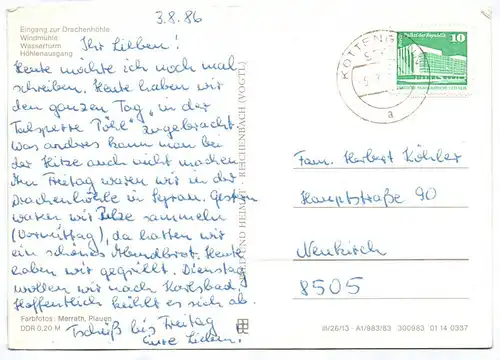 3.8.86
Eingang zur Drachenhöhle
Windmühle
Wasserturm
Höhlenausgang
Ihr Lieben!
Heute möchte ich noch mal
schreiben. Heute haben wir
den ganzen Tag in der
Talsperre Pöhl zugebracht
was anderes kann man bei
der Hitze auch nicht machen.
Am Freitag waren wir in der
Drachenhöhle in Syrau. Gestern
waren wir Pilze sammeln
(Vormittag), da hatten wir
ein schönes Abendbrot. Heute
haben wir gegrillt. Dienstag
wollen wir nach Karlsbad.
Hoffentlich kühlt es sich ab.
Tschüß bis Freitag
Eure Lieben!
Farbfotos: Merrath, Plauen
DDR 0,20 M
BILD UND HEIMAT REICHENBACH (VOGTL)
KOTTENG
a
Palast der Republik
10
Fam. Herbert Köhler
Hauptstraße 90
Neukirch
8505
III/26/13 A1/983/83 300983 01 14 0337